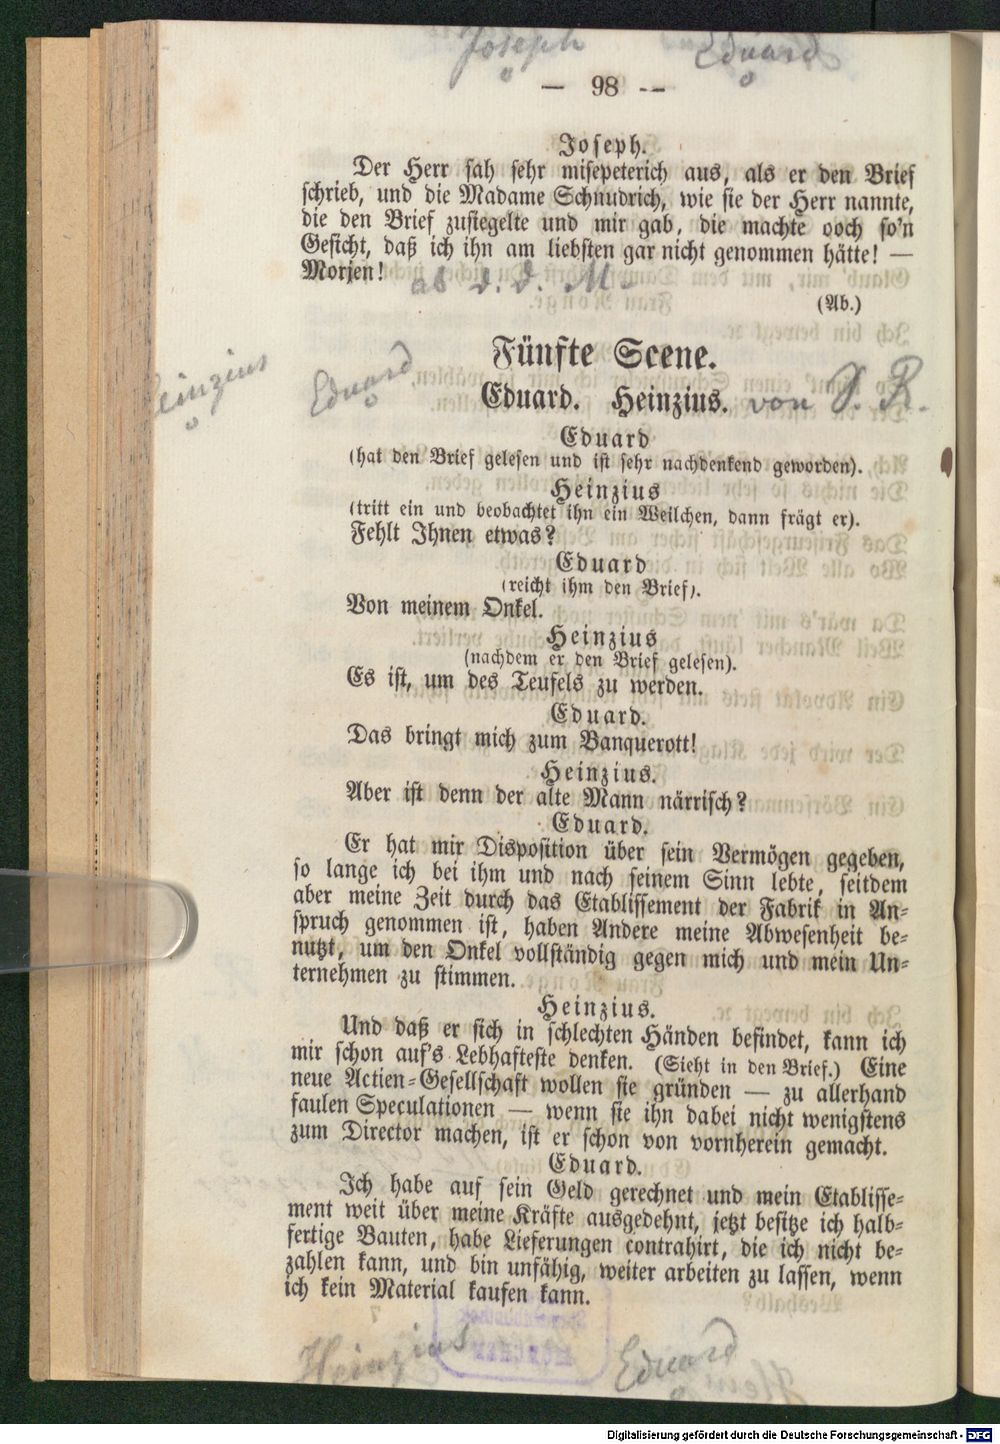 Joseph Eduard
— 98 —
Joseph.
Der Herr sah sehr misepeterich aus, als er den Brief
schrieb, und die Madame Schnudrich, wie sie der Herr nannte,
die den Brief zusiegelte und mir gab, die machte ooch so'n
Gesicht, daß ich ihn am liebsten gar nicht genommen hätte! —
Morjen!
ab d. d. M.
(Ab.)
Fünfte Scene.
Heinzius Eduard
Eduard. Heinzius. von
Eduard
(hat den Brief gelesen und ist sehr nachdenkend geworden).
Heinzius
(tritt ein und beobachtet ihn ein Weilchen, dann frägt er).
Fehlt Ihnen etwas?
Eduard
(reicht ihm den Brief).
Von meinem Onkel.
Heinzius
(nachdem er den Brief gelesen).
Es ist, um des Teufels zu werden.
Eduard.
Das bringt mich zum Banquerott!
Heinzius.
Aber ist denn der alte Mann närrisch?
Eduard.
Er hat mir Disposition über sein Vermögen gegeben,
so lange ich bei ihm und nach seinem Sinn lebte, seitdem
aber meine Zeit durch das Etablissement der Fabrik in An-
spruch genommen ist, haben Andere meine Abwesenheit be-
nutzt, um den Onkel vollständig gegen mich und mein Un-
ternehmen zu stimmen.
Heinzius.
Und daß er sich in schlechten Händen befindet, kann ich
mir schon auf's Lebhafteste denken. (Sieht in den Brief.) Eine
neue Actien-Gesellschaft wollen sie gründen — zu allerhand
faulen Speculationen — wenn sie ihn dabei nicht wenigstens
zum Director machen, ist er schon von vornherein gemacht.
Eduard.
Ich habe auf sein Geld gerechnet und mein Etablisse-
ment weit über meine Kräfte ausgedehnt, jetzt besitze ich halb-
fertige Bauten, habe Lieferungen contrahirt, die ich nicht be-
zahlen kann, und bin unfähig, weiter arbeiten zu lassen, wenn
ich kein Material kaufen kann.
Heinzius Eduard
Digitalisierung gefördert durch die Deutsche Forschungsgemeinschaft - DFG